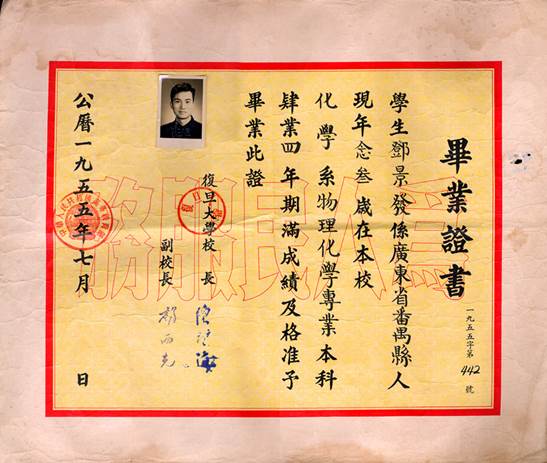 畢業證書
一九五五字第442號
學生鄧景發係廣東省番禺縣人
現年念叁歲在本校
化學系物理化學專業本科
肄業四年期滿成績及格准予
畢業此證
復旦大學校長
副校長
公曆一九五五年七月 日
為人民服務